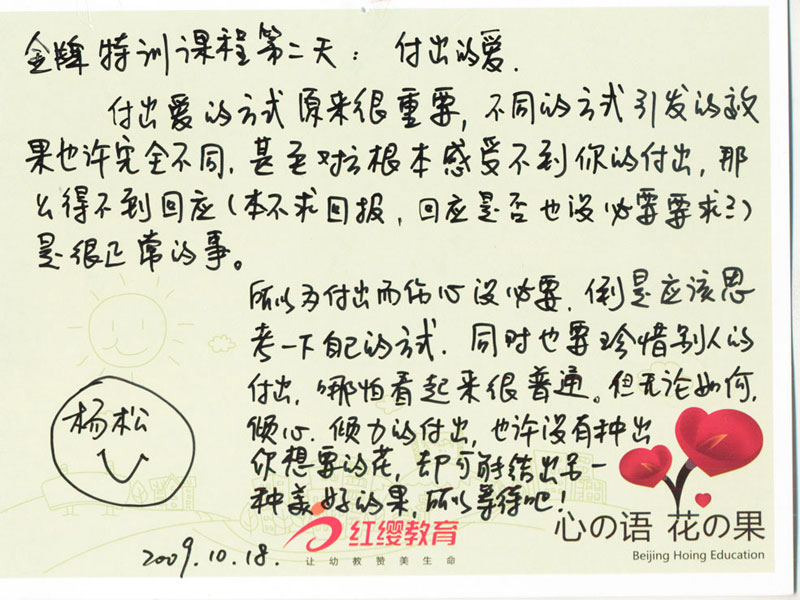 金牌特训课程第二天：付出的爱.
付出爱的方式原来很重要，不同的方式引发的效
果也许完全不同，甚至对方根本感受不到你的付出，那
么得不到回应（本不求回报，回应是否也没必要要求？）
是很正常的事。
所以为付出而伤心没必要，倒是应该思
考一下自己的方式．同时也要珍惜别人的
付出，哪怕看起来很普通。但无论如何，
倾心、倾力的付出，也许没有种出
你想要的花，却可能结出另一
种美好的果，所以等待吧！
杨松
2009.10.18.
红缨教育
让幼教赞美生命
心の语 花の果
Beijing Hoing Education